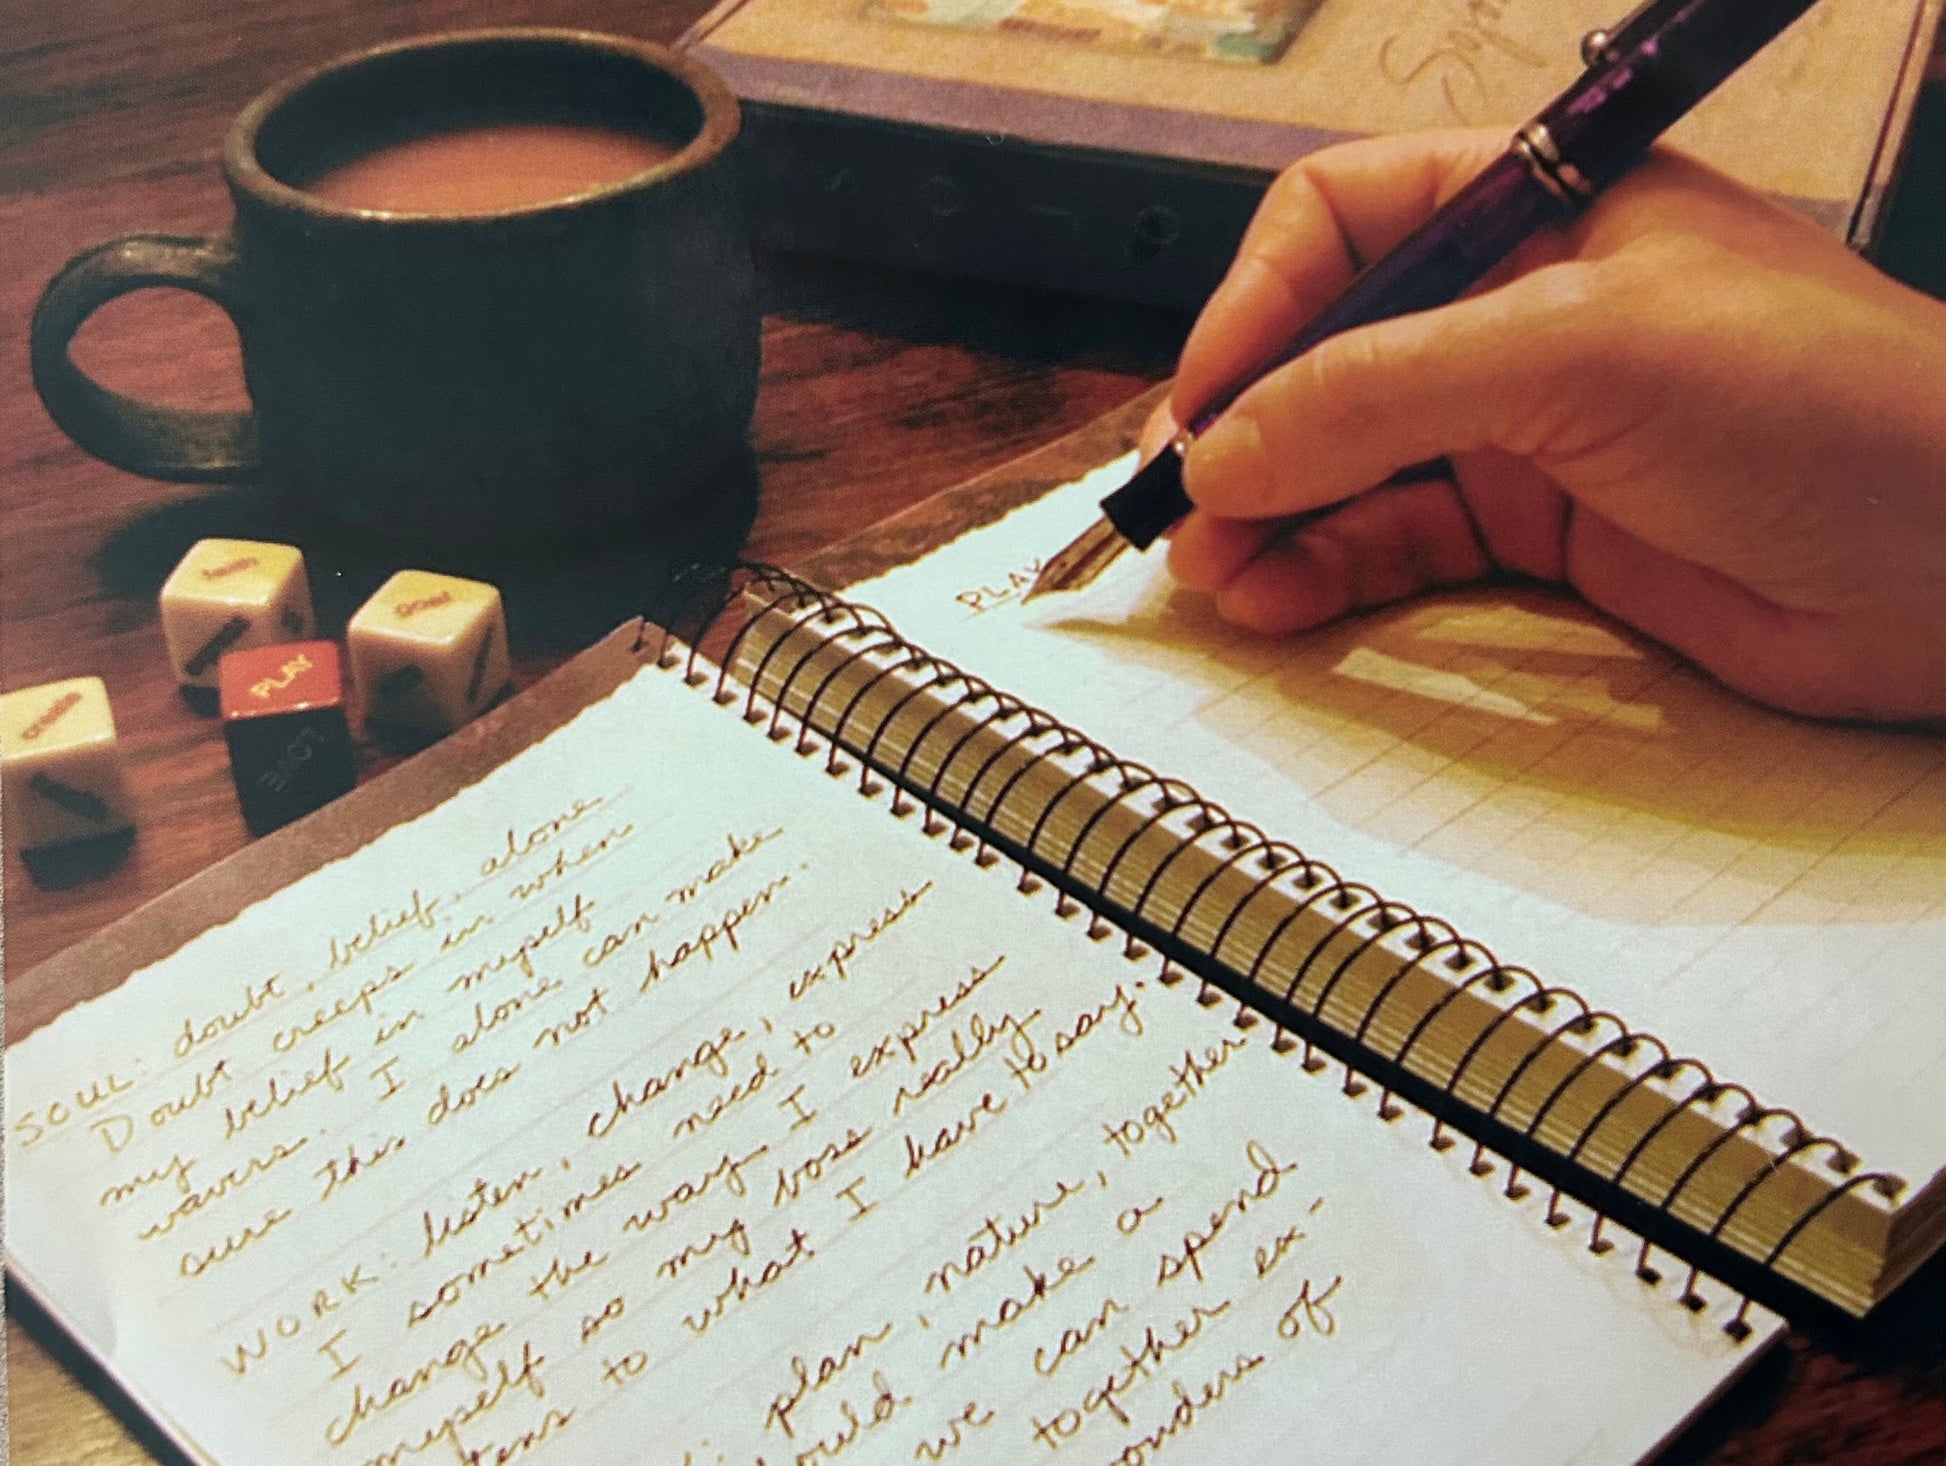 PLAY
PLAY
LOVE
SOUL: doubt, belief, alone
Doubt creeps in when
my belief in myself
wavers. I alone can make
sure this does not happen.
WORK: listen, change, express
I sometimes need to
change the way I express
myself so my boss really
tens to what I have to say.
: plan, nature, together
ould make a
we can spend
together ex-
onders of